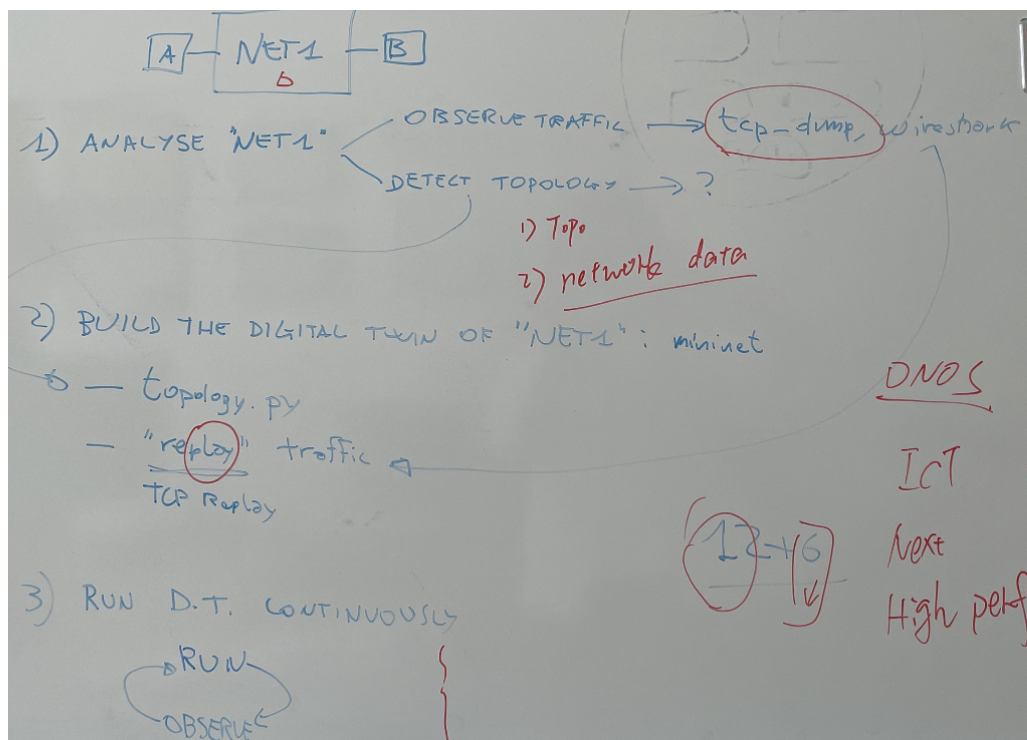 A NET1 B
1) ANALYSE "NET1"
OBSERVE TRAFFIC → tcp-dump, wireshark
DETECT TOPOLOGY → ?
1) Topo
2) network data
2) BUILD THE DIGITAL TWIN OF "NET1": mininet
— topology.py
— "replay" traffic
TCP Replay
ONOS
ICT
Next
High perf
12+6
3) RUN D.T. CONTINUOUSLY
RUN
OBSERVE